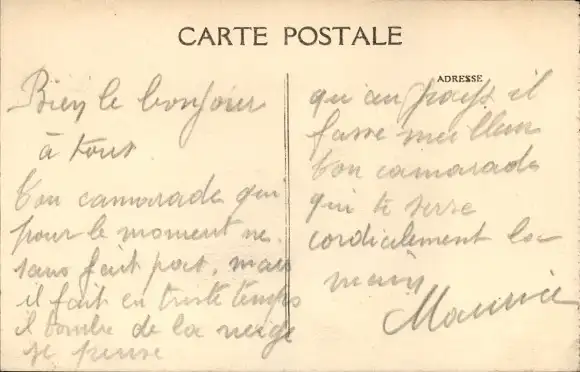 CARTE POSTALE
ADRESSE
Bien le bonjour
à tous
Ton camarade qui
pour le moment ne
sans fait pas, mais
il fait en triste temps
il tombe de la neige
je pense
qu'au pays il
fasse meilleur
Ton camarade
qui te serre
cordialement la
main
Maurice